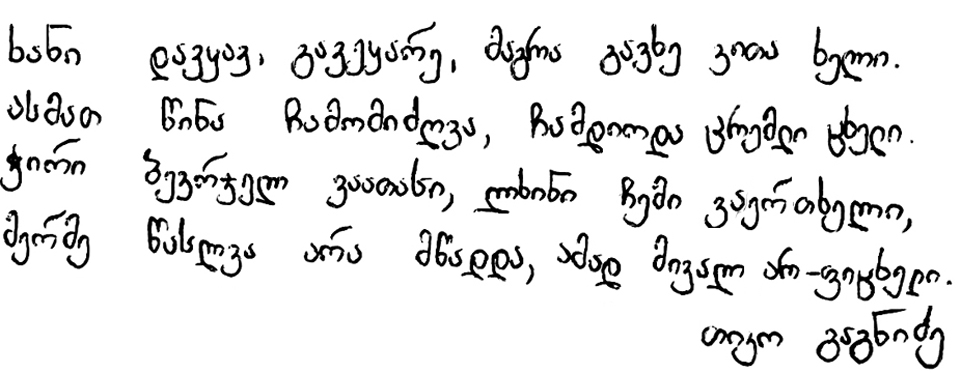 ხანი დავყავ, გავეყარე, მაგრა გავხე ვითა ხელი.
ასმათ წინა ჩამომიძღვა, ჩამდიოდა ცრემლი ცხელი.
ჭირი ბევრჯელ ვაათასი, ლხინი ჩემი ვაერთხელი,
მერმე წასლვა არა მწადდა, ამად მივალ არ-ფიცხელი.
თიკო გაგნიძე